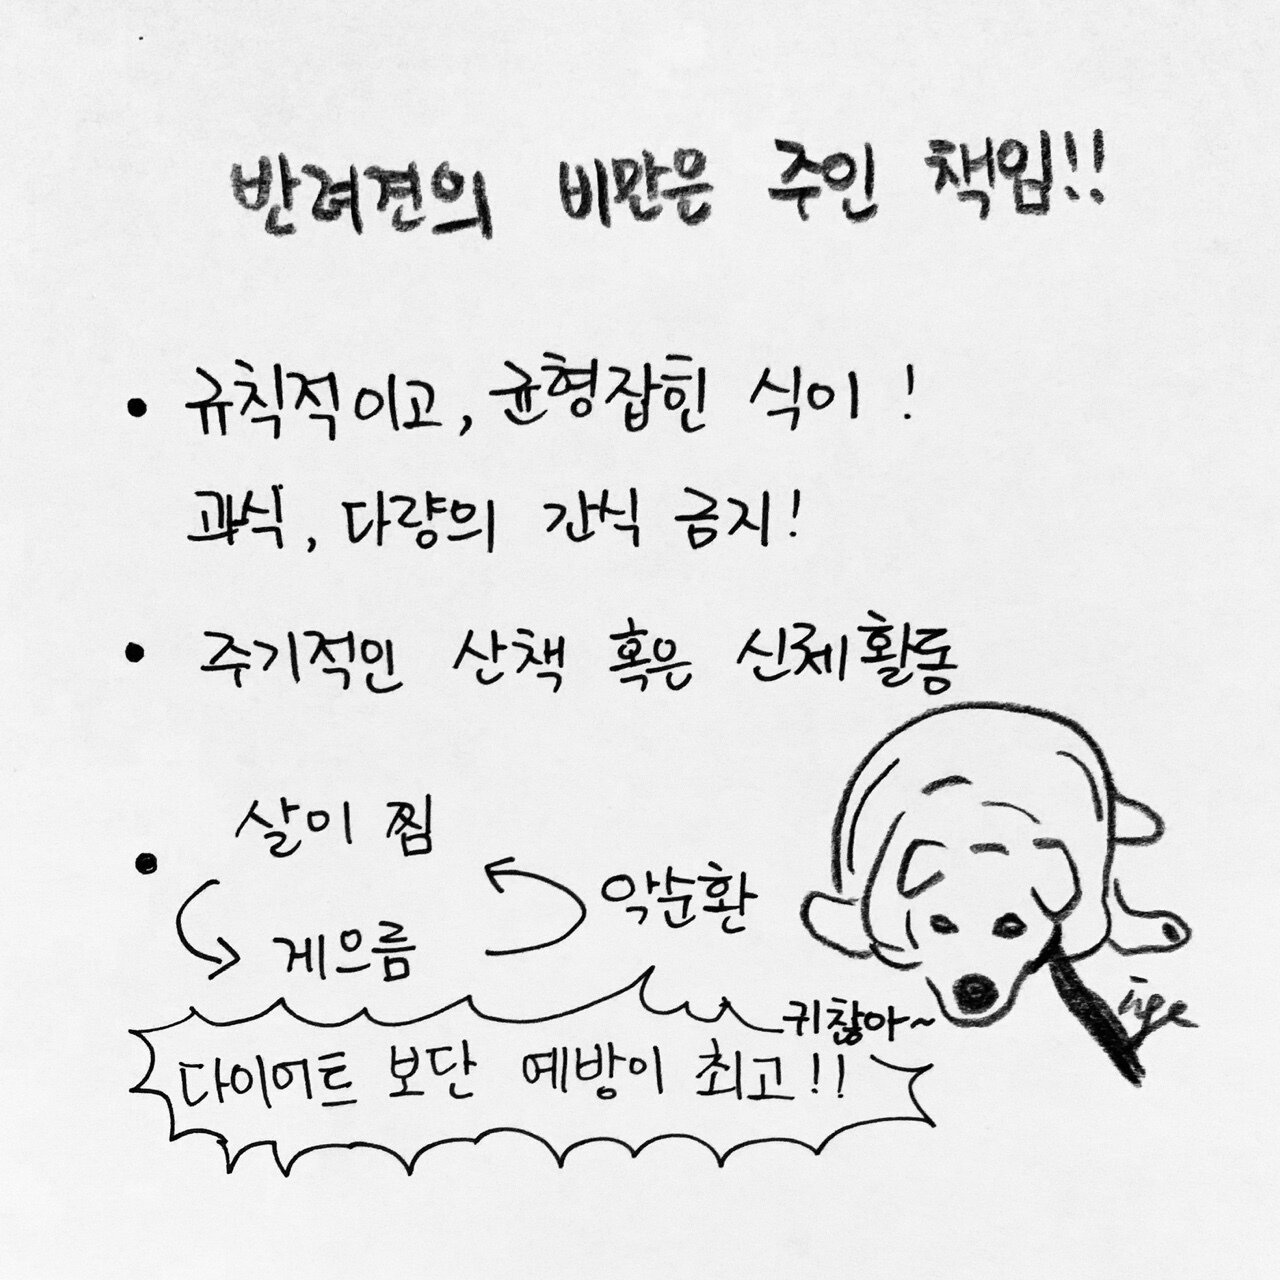 반려견의 비만은 주인 책임!!
• 규칙적이고, 균형잡힌 식이!
과식, 다량의 간식 금지!
• 주기적인 산책 혹은 신체활동
• 살이 찜
악순환
게으름
귀찮아~
다이어트 보단 예방이 최고!!